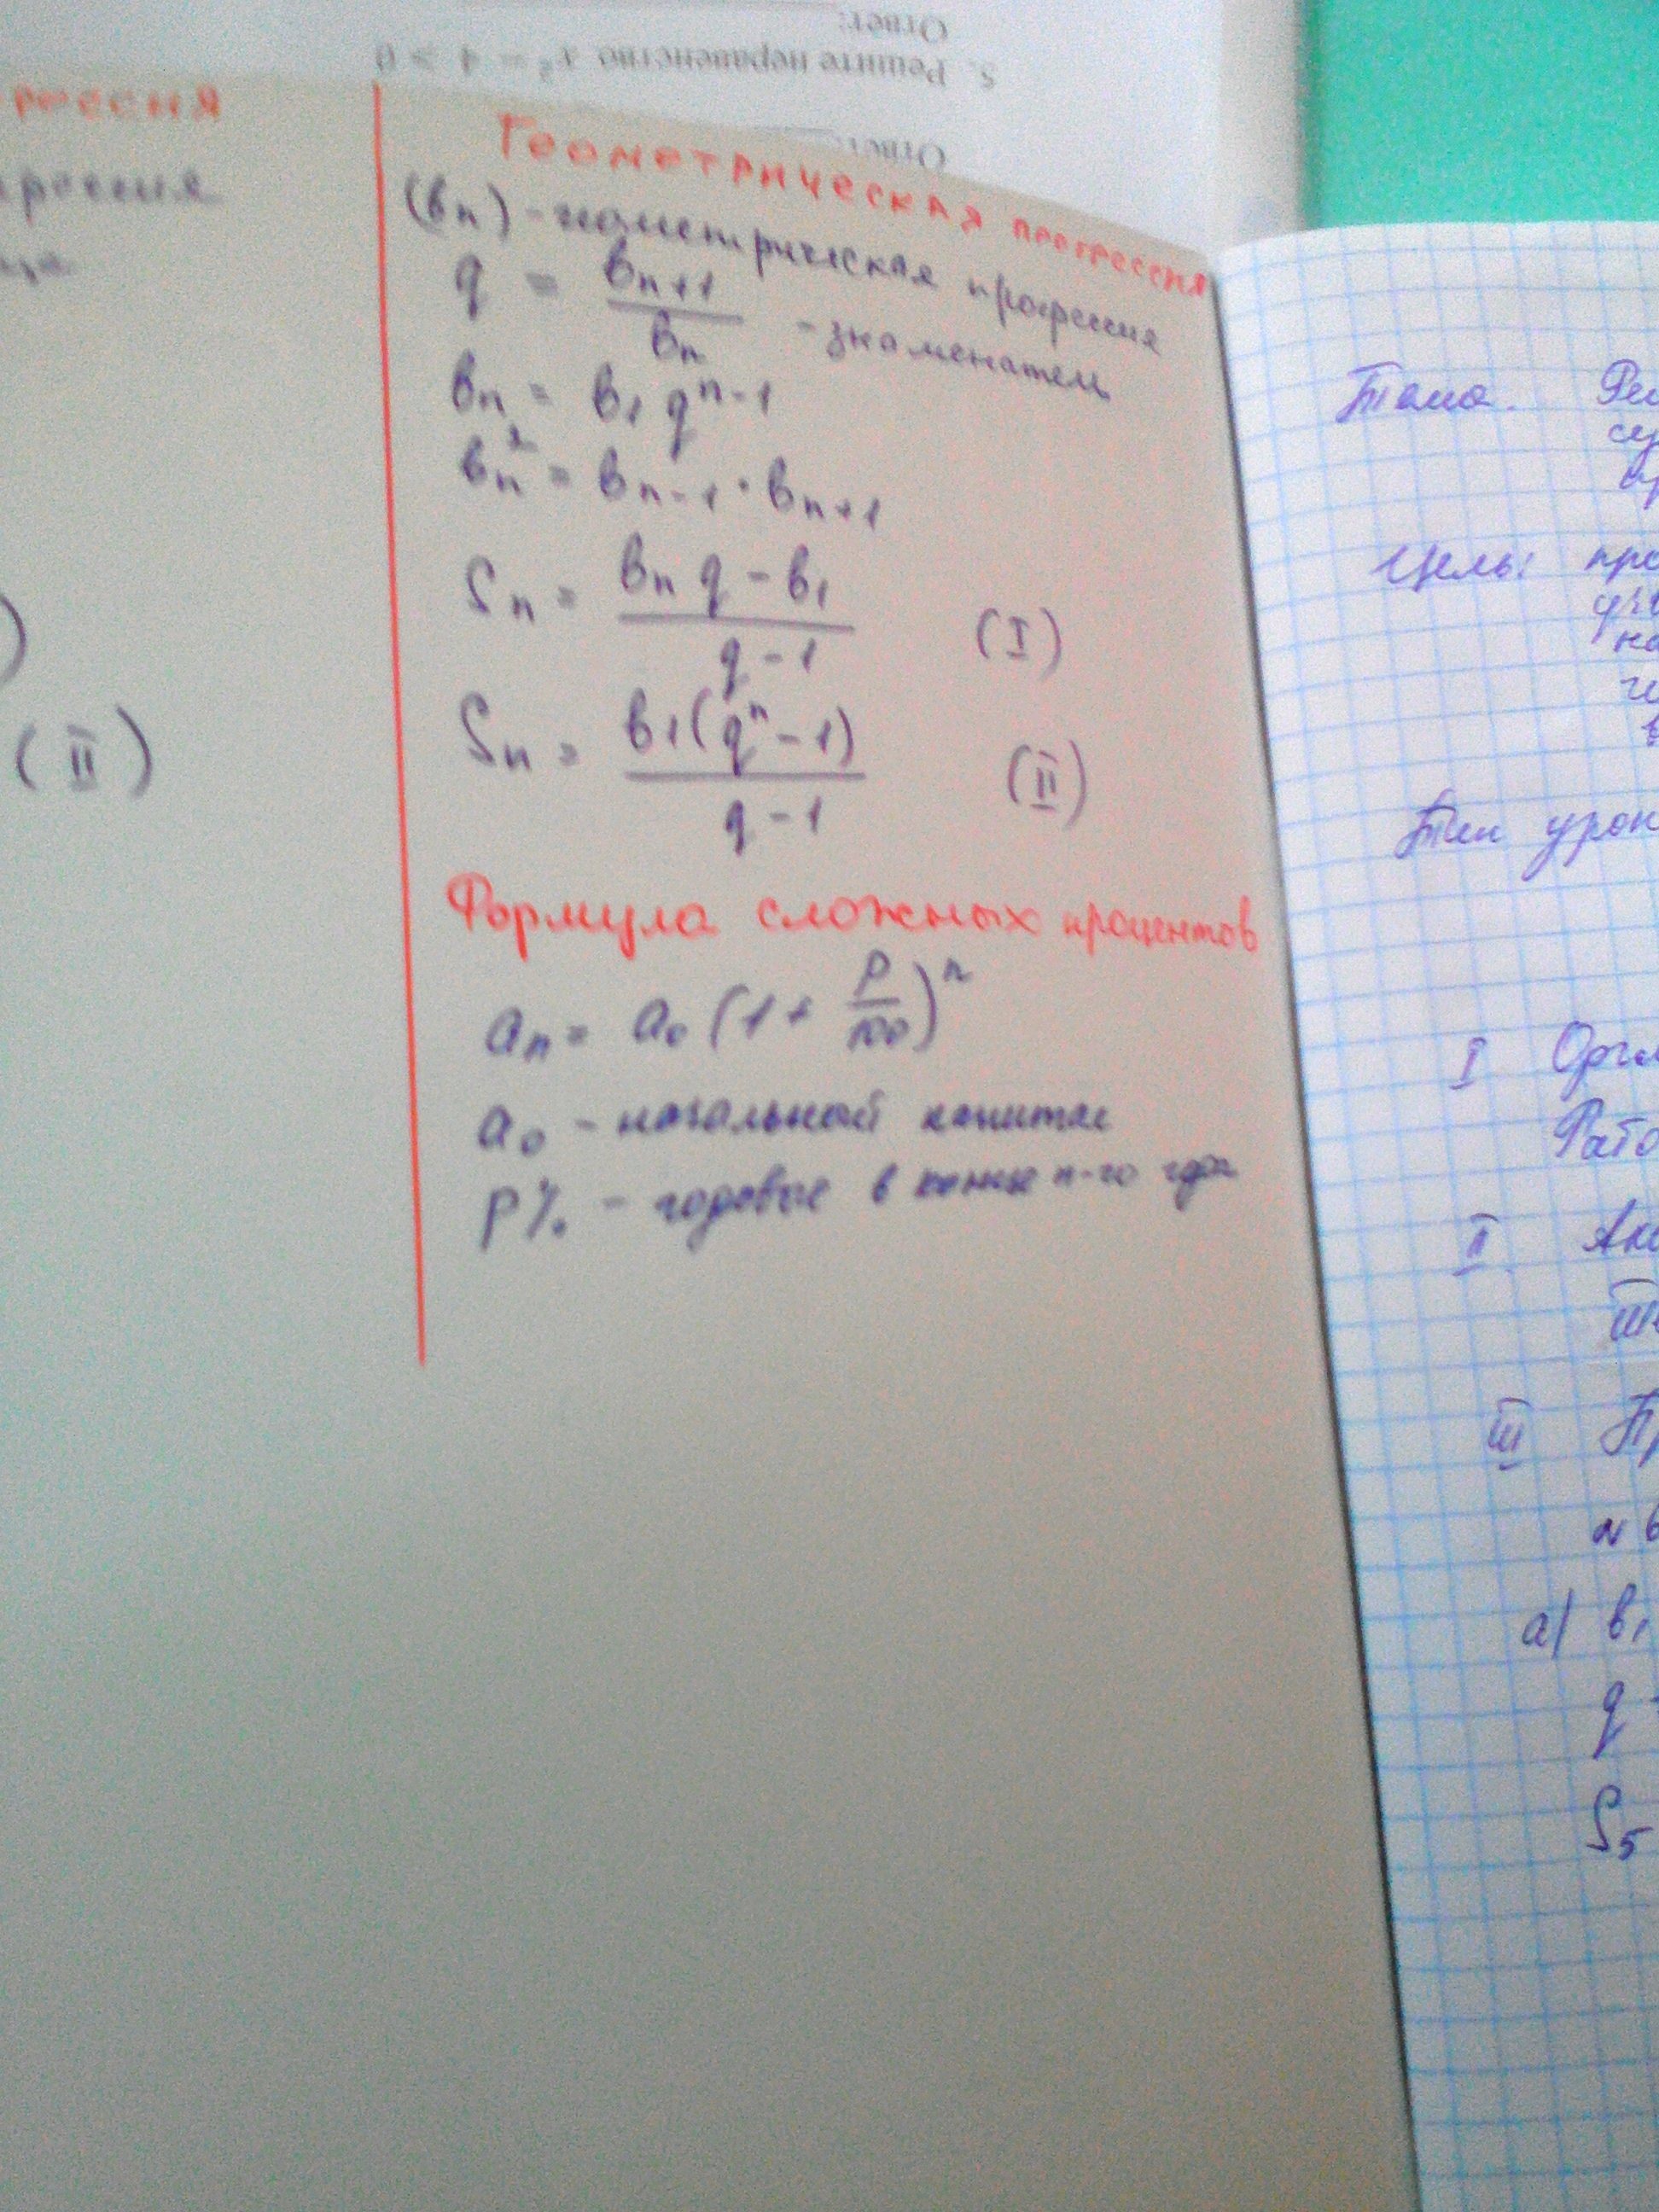 Ответ:
5. Решите неравенство x² − 4 > 0
Ответ:
рессия
рессия
)
(II)
Геометрическая прогрессия
(вn) - геометрическая прогрессия
q = вn+1 / вn - знаменатель
вn = в1 qⁿ⁻¹
вn² = вn-1 · вn+1
Sn = (вn q - в1) / (q - 1) (I)
Sn = в1(qⁿ - 1) / (q - 1) (II)
Формула сложных процентов
an = a0 (1 + p/100)ⁿ
a0 - начальный капитал
p% - годовые в конце n-го года
Тема.
Цель:
Тип урок
I Орга
II
III Пр
а) в1
q
S5